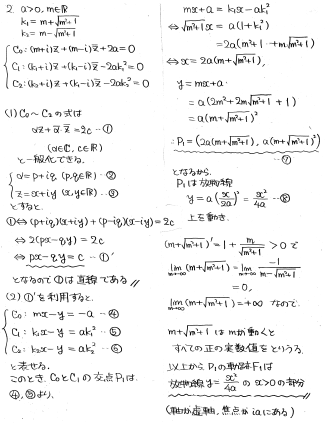 2. a>0, m∈ℝ
k₁=m+√(m²+1)
k₂=m-√(m²+1)
C₀: (m+i)z+(m-i)z̄+2a=0
C₁: (k₁+i)z+(k₁-i)z̄-2ak₁²=0
C₂: (k₂+i)z+(k₂-i)z̄-2ak₂²=0
(1) C₀~C₂の式は
αz+ᾱz̄=2c …①
(α∈ℂ, c∈ℝ)
と一般化できる。
α=p+iq (p,q∈ℝ) …②
z=x+iy (x,y∈ℝ) …③
とすると、
①⇔(p+iq)(x+iy)+(p-iq)(x-iy)=2c
⇔2(px-qy)=2c
⇔px-qy=c …①'
となるので①は直線である。//
(2) ①'を利用すると、
C₀: mx-y=-a …④
C₁: k₁x-y=ak₁² …⑤
C₂: k₂x-y=ak₂² …⑥
と表せる。
このとき、C₀とC₁の交点P₁は
④,⑤より、
mx+a=k₁x-ak₁²
⇔√(m²+1)x=a(1+k₁²)
=2a(m²+1+m√(m²+1))
⇔x=2a(m+√(m²+1)),
y=mx+a
=a(2m²+2m√(m²+1)+1)
=a(m+√(m²+1))²
∴P₁=(2a(m+√(m²+1)), a(m+√(m²+1))²)
…⑦
となるから、
P₁は放物線
y=a(x/2a)²=x²/4a …⑧
上を動き、
(m+√(m²+1))'=1+m/√(m²+1)>0で
lim[m→-∞](m+√(m²+1))=lim[m→-∞] -1/(m-√(m²+1))
=0,
lim[m→∞](m+√(m²+1))=+∞ なので
m+√(m²+1)はmが動くと
すべての正の実数値をとりうる。
以上からP₁の軌跡F₁は
放物線y=x²/4aのx>0の部分//
(軸が虚軸、焦点がiaにある)